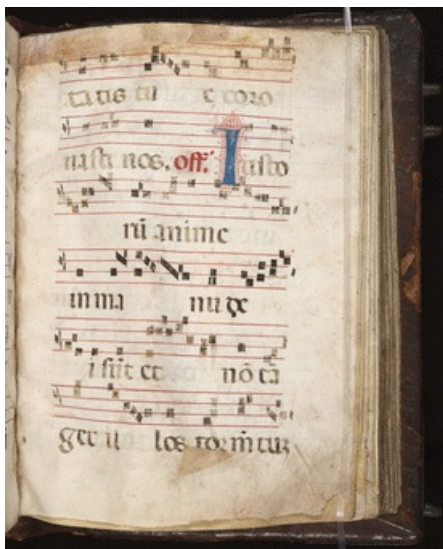 ta tis tu e coro
nasti nos. off. Iusto
rū anime
in ma nu de
i sūt et nō tā
get il los torm̄ tuz